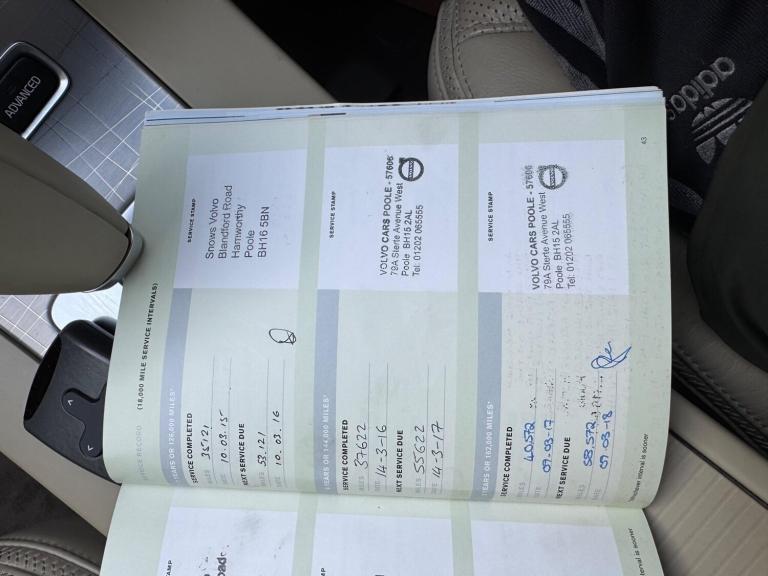 ADVANCED
adidas
SERVICE RECORD (18,000 MILE SERVICE INTERVALS)
YEARS OR 126,000 MILES*
SERVICE COMPLETED
MILES 35121
DATE 10.03.15
NEXT SERVICE DUE
MILES 53,121
DATE 10.03.16
SERVICE STAMP
Snows Volvo
Blandford Road
Hamworthy
Poole
BH16 5BN
YEARS OR 144,000 MILES*
SERVICE COMPLETED
MILES 37622
DATE 14-3-16
NEXT SERVICE DUE
MILES 55622
DATE 14-3-17
SERVICE STAMP
VOLVO CARS POOLE - 57606
79A Sterte Avenue West
Poole BH15 2AL
Tel: 01202 065555
YEARS OR 162,000 MILES*
SERVICE COMPLETED
MILES 40,572
DATE 07-03-17
NEXT SERVICE DUE
MILES 58,572
DATE 07-03-18
SERVICE STAMP
VOLVO CARS POOLE - 57606
79A Sterte Avenue West
Poole BH15 2AL
Tel: 01202 065555
*Whichever interval is sooner
43
interval is sooner